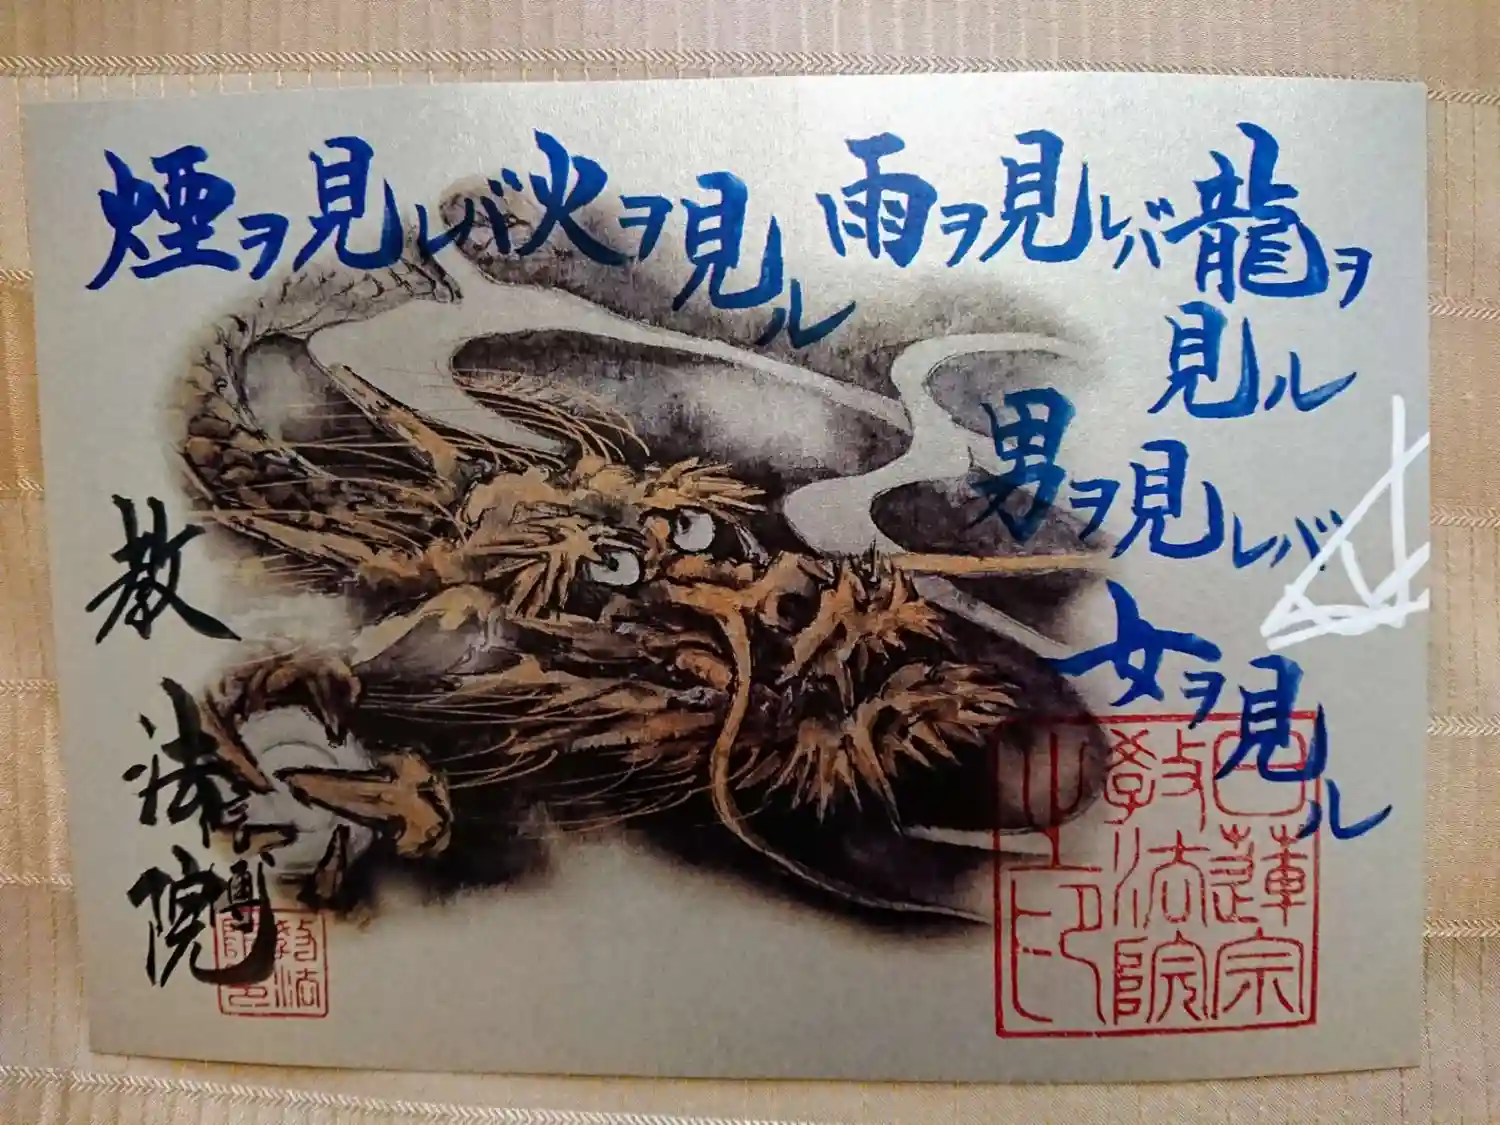 煙ヲ見レバ火ヲ見ル
雨ヲ見レバ龍ヲ
見ル
男ヲ見レバ
女ヲ見ル
教法院
日蓮宗
教法院
之印
教法